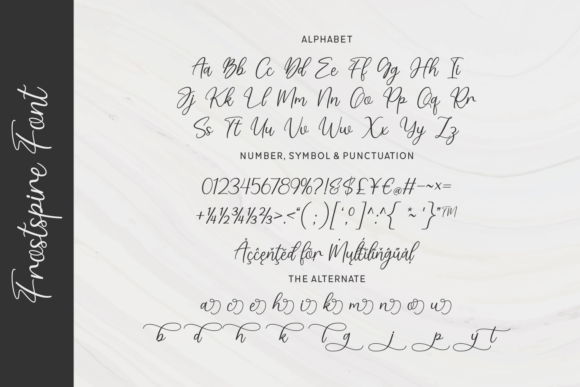 Frostspire Font
ALPHABET
Aa Bb Cc Dd Ee Ff Gg Hh Ii
Jj Kk Ll Mm Nn Oo Pp Qq Rr
Ss Tt Uu Vv Ww Xx Yy Zz
NUMBER, SYMBOL & PUNCTUATION
0123456789%?!&$£¥€@#-~×=
+¼½¾⅓⅔>.<“(:)[‘,°]^·^{ *~ ‘}”™
Accented for Multilingual
THE ALTERNATE
a c e h i k m n o u
b d h k l g j p y t